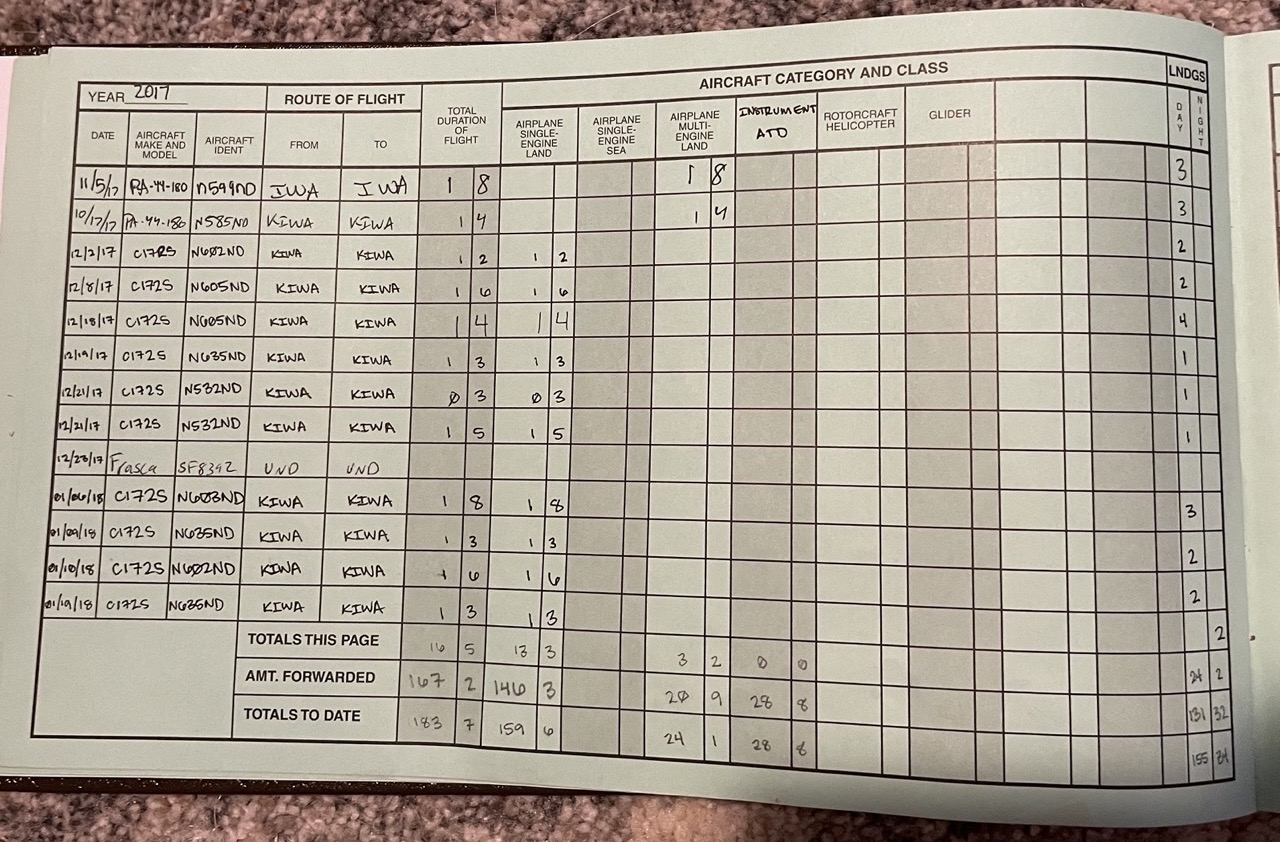 YEAR 2017 ROUTE OF FLIGHT TOTAL DURATION OF FLIGHT AIRCRAFT CATEGORY AND CLASS LNDGS
DATE AIRCRAFT MAKE AND MODEL AIRCRAFT IDENT FROM TO AIRPLANE SINGLE-ENGINE LAND AIRPLANE SINGLE-ENGINE SEA AIRPLANE MULTI-ENGINE LAND INSTRUMENT ATD ROTORCRAFT HELICOPTER GLIDER DAY NIGHT
11/5/17 PA-44-180 N599ND IWA IWA 1 8 1 8 3
10/17/17 PA-44-180 N585ND KIWA KIWA 1 4 1 4 3
12/2/17 C172S N602ND KIWA KIWA 1 2 1 2 2
12/8/17 C172S N605ND KIWA KIWA 1 6 1 6 2
12/18/17 C172S N605ND KIWA KIWA 1 4 1 4 4
12/19/17 C172S N635ND KIWA KIWA 1 3 1 3 1
12/21/17 C172S N532ND KIWA KIWA 0 3 0 3 1
12/21/17 C172S N532ND KIWA KIWA 1 5 1 5 1
12/23/17 Frasca SF8342 UND UND
01/06/18 C172S N603ND KIWA KIWA 1 8 1 8 3
01/09/18 C172S N635ND KIWA KIWA 1 3 1 3 2
01/10/18 C172S N602ND KIWA KIWA 1 6 1 6 2
01/19/18 C172S N635ND KIWA KIWA 1 3 1 3 2
TOTALS THIS PAGE 16 5 13 3 3 2 0 0 24 2
AMT. FORWARDED 167 2 146 3 20 9 28 8 131 32
TOTALS TO DATE 183 7 159 6 24 1 28 8 155